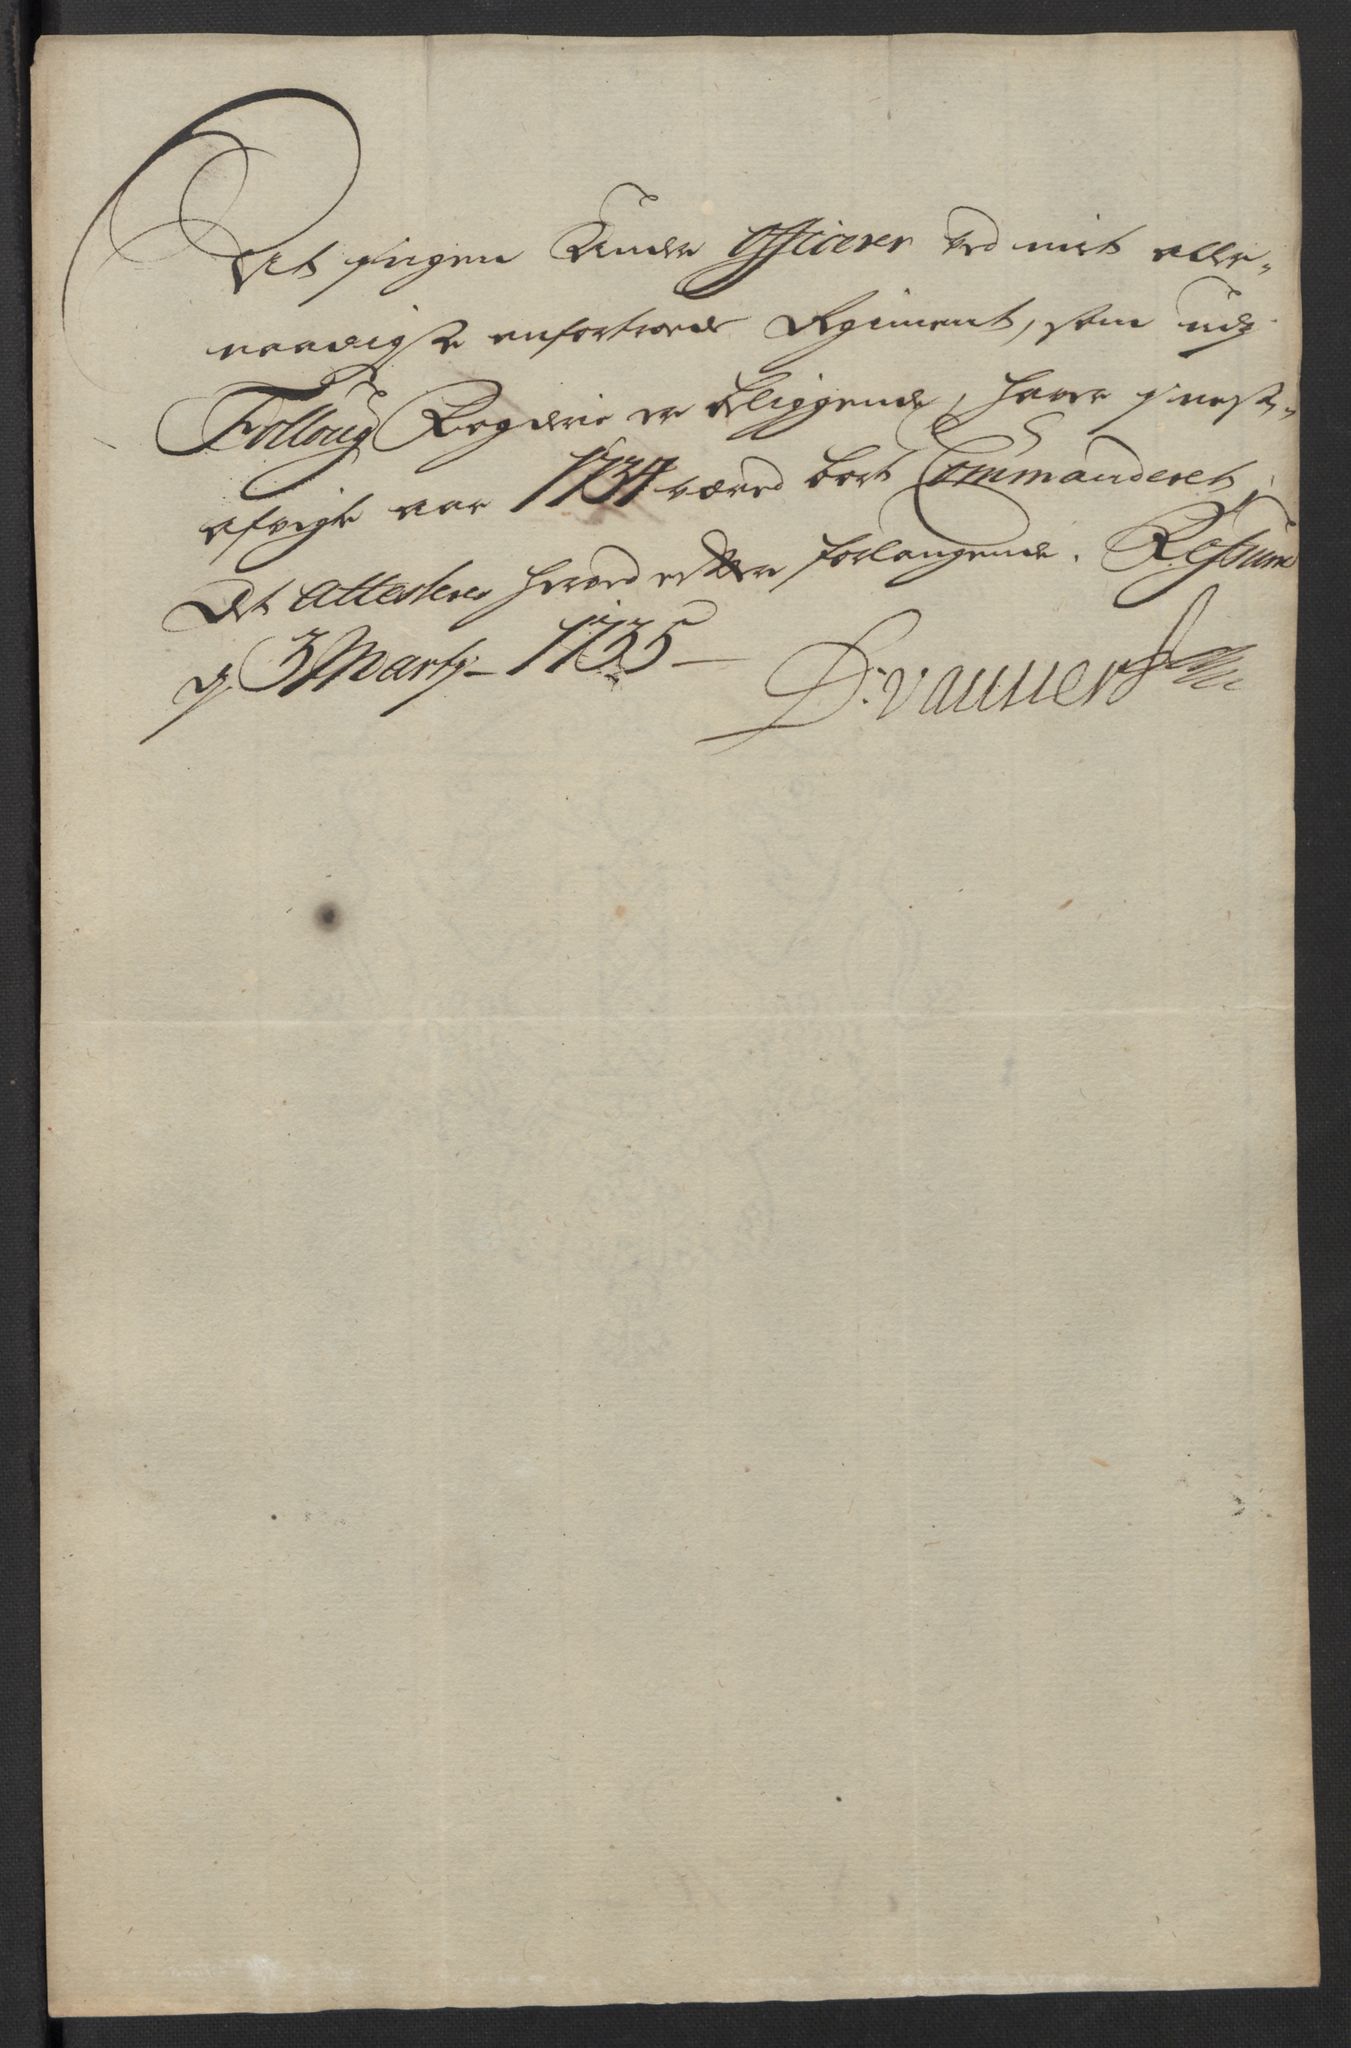 At ingen Under Officerer ved mit aller„
naadigste anfortroede Regiment, som udj
Folloug Fogderie er beliggende, haver i nest„
afvigte aar 1734 været bort Commanderet,
Det Attesteres herved efter forlangende. Refsum
d. 3 Martj – 1735 –
D: vauuert